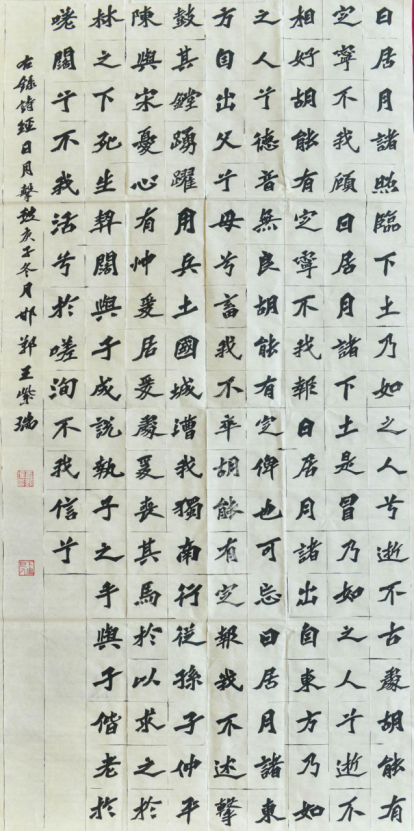 日居月諸照臨下土乃如之人兮逝不古處胡能有
定寧不我顧日居月諸下土是冒乃如之人兮逝不
相好胡能有定寧不我報日居月諸出自東方乃如
之人兮德音無良胡能有定俾也可忘日居月諸東
方自出父兮母兮畜我不卒胡能有定報我不述擊
鼓其鏜踴躍用兵土國城漕我獨南行從孫子仲平
陳與宋憂心有忡爰居爰處爰喪其馬於以求之於
林之下死生契闊與子成說執子之手與子偕老於
嗟闊兮不我活兮於嗟洵不我信兮
右錄詩經日月擊鼓庚子冬月邯鄲王紫瑞